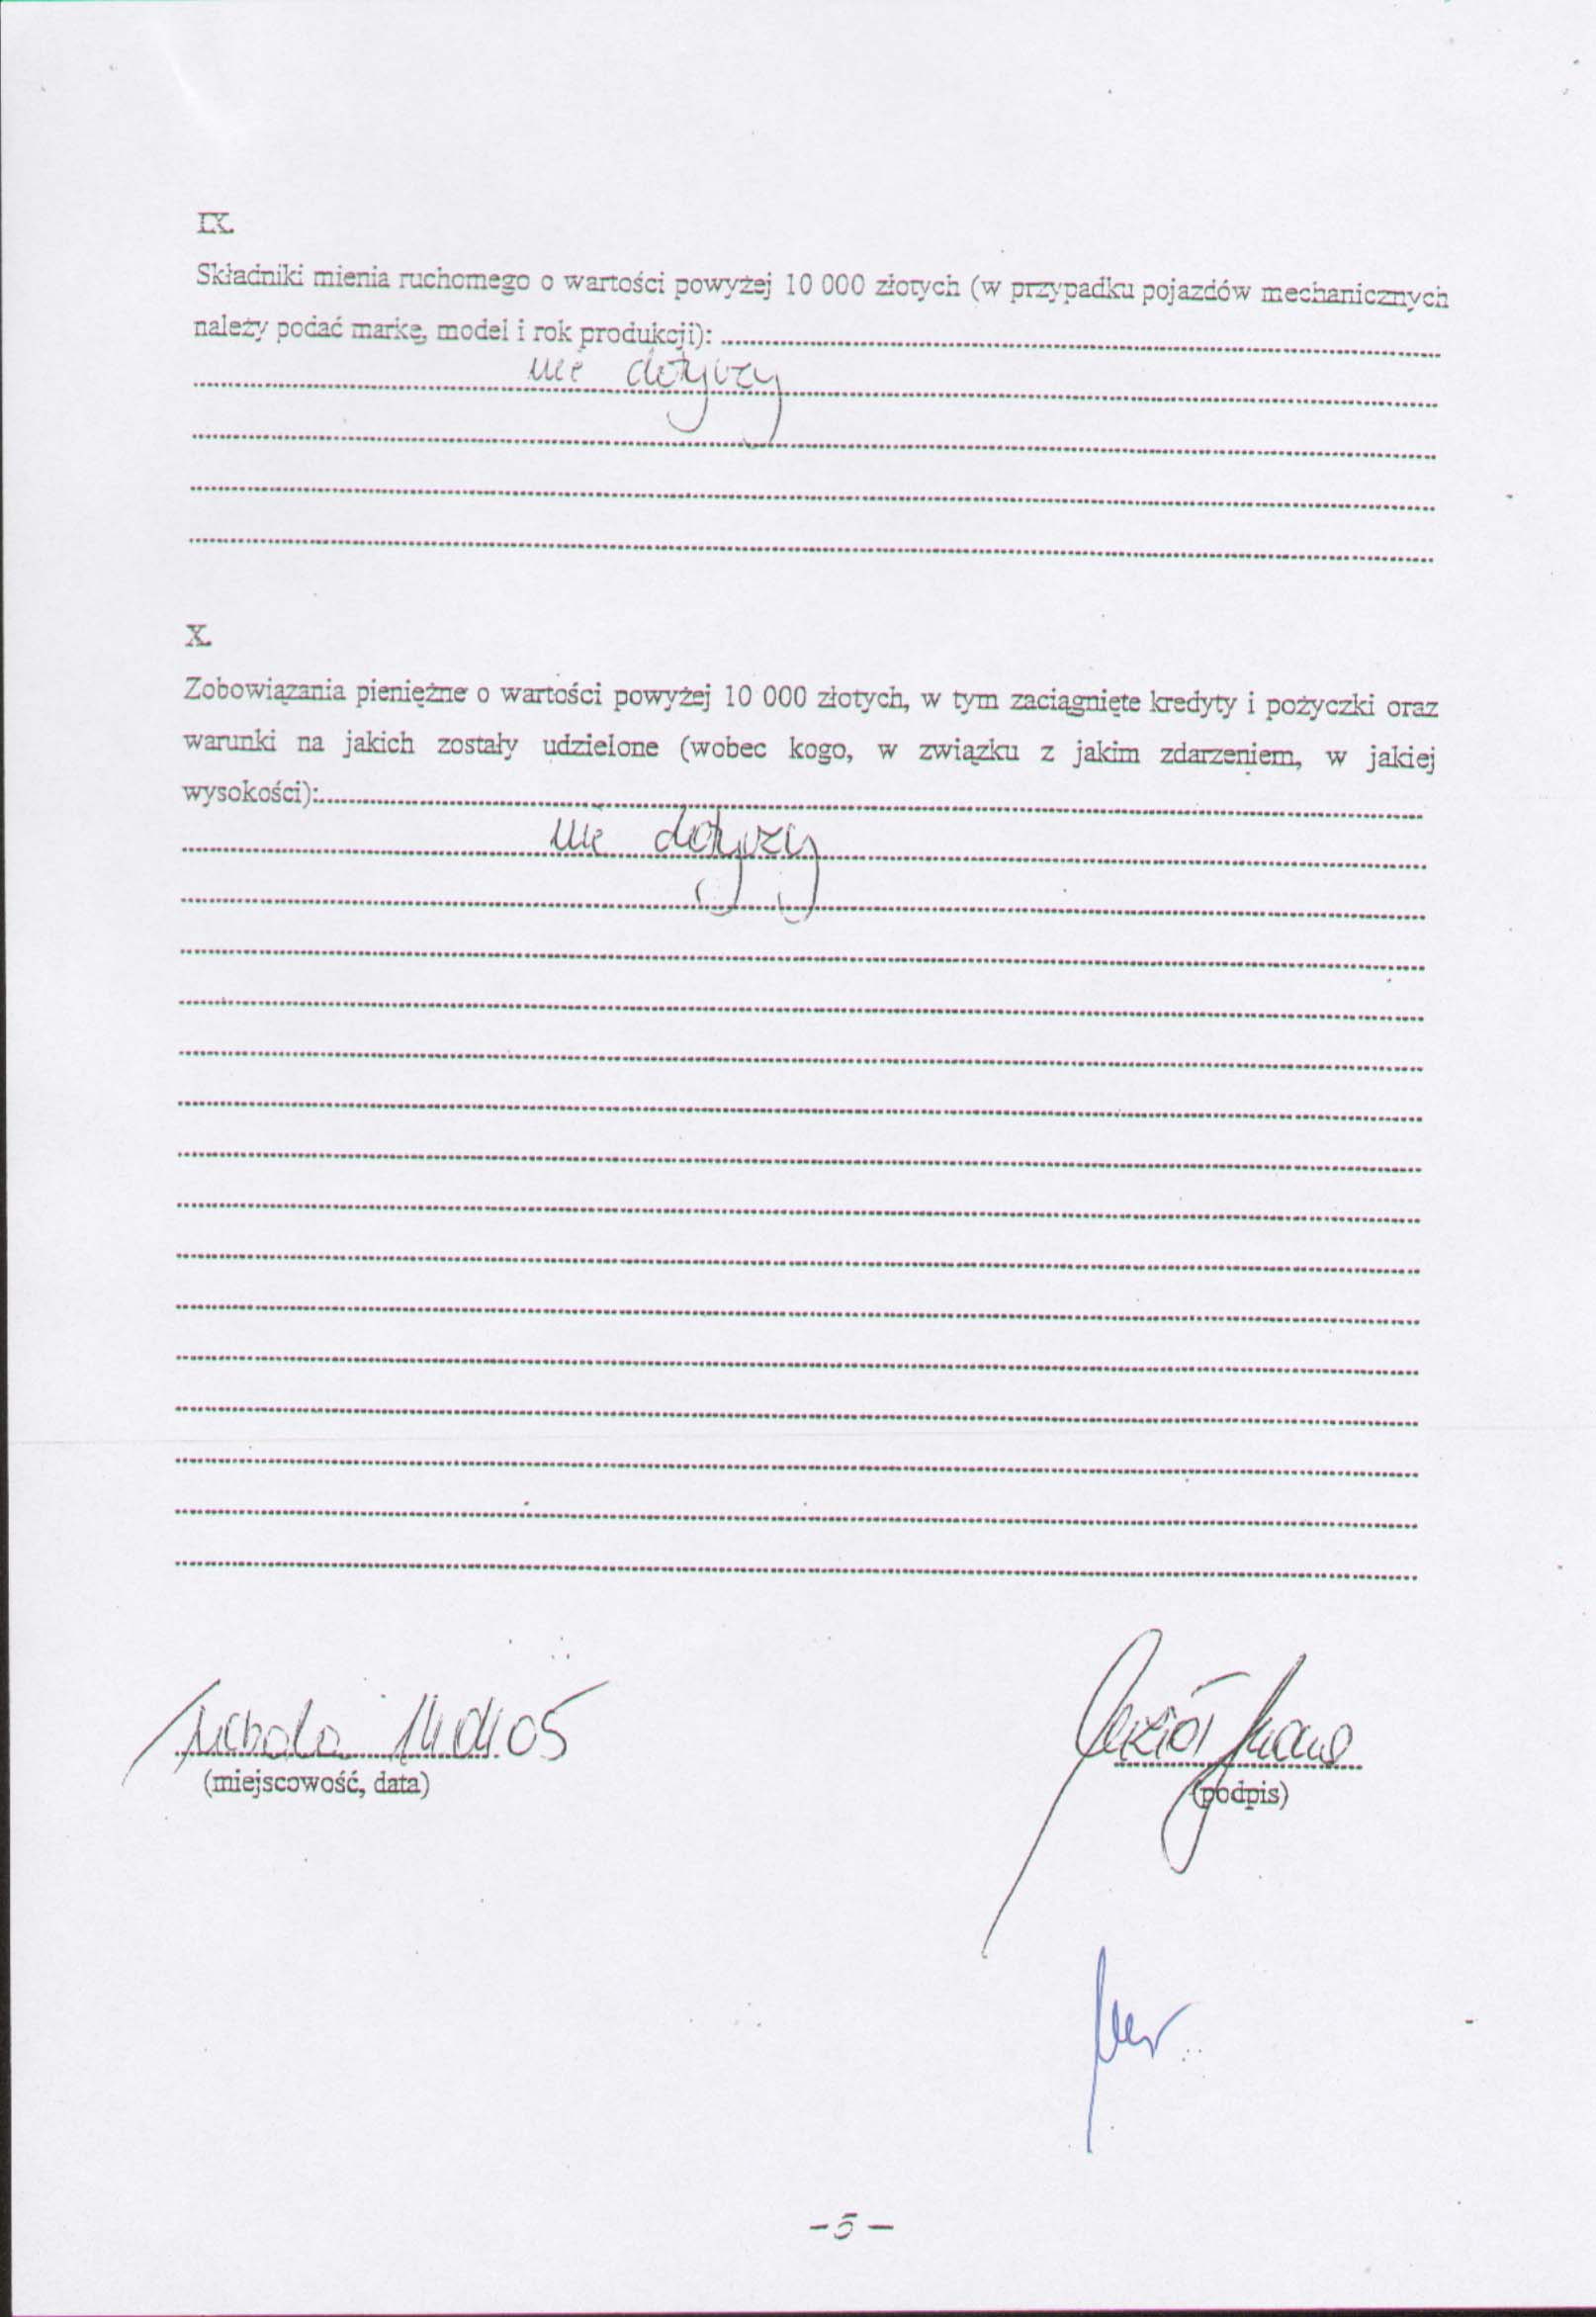 IX.
Składniki mienia ruchomego o wartości powyżej 10 000 złotych (w przypadku pojazdów mechanicznych
należy podać markę, model i rok produkcji):
nie dotyczy
X.
Zobowiązania pieniężne o wartości powyżej 10 000 złotych, w tym zaciągnięte kredyty i pożyczki oraz
warunki na jakich zostały udzielone (wobec kogo, w związku z jakim zdarzeniem, w jakiej
wysokości):
nie dotyczy
05
(miejscowość, data)
(podpis)
- 5 -